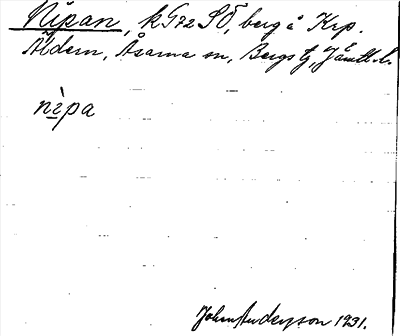 Nipan, k G72 SÖ, berg å Krp.
Åldern, Åsarna sn, Bergs tg, Jämtl. l.
nìpa
John Anderson 1931.